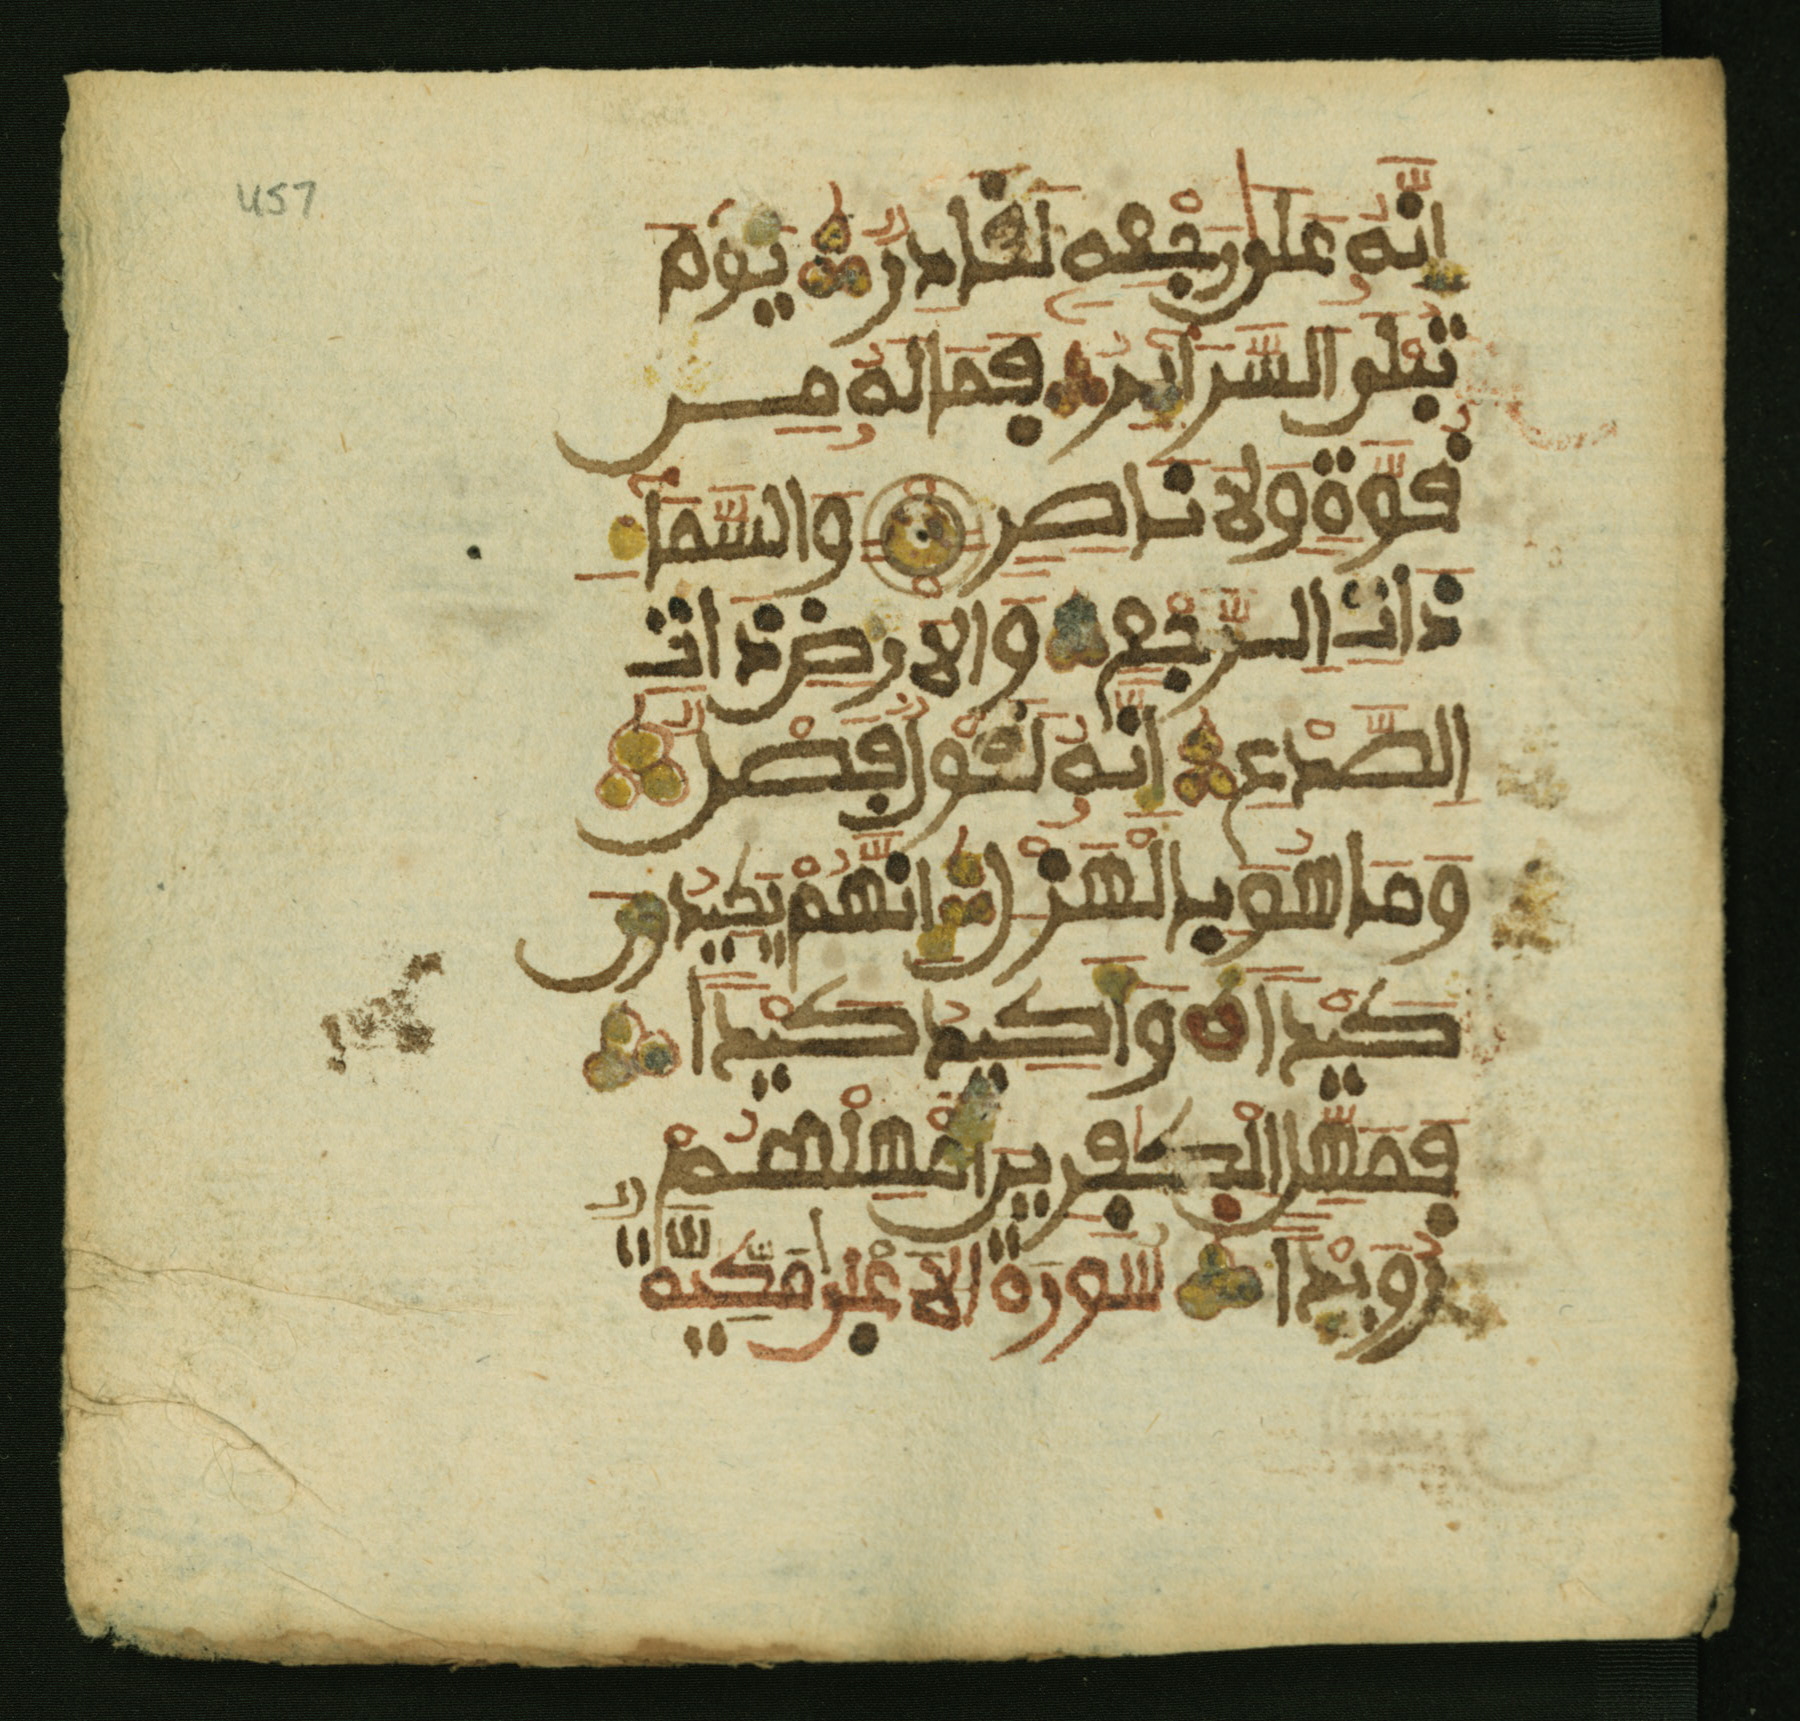 457
إِنَّهُ عَلَىٰ رَجْعِهِ لَقَادِرٌ يَوْمَ
تُبْلَى السَّرَآئِرُ فَمَا لَهُ مِن
قُوَّةٍ وَلَا نَاصِرٍ وَالسَّمَآءِ
ذَاتِ الرَّجْعِ وَالْأَرْضِ ذَاتِ
الصَّدْعِ إِنَّهُ لَقَوْلٌ فَصْلٌ
وَمَا هُوَ بِالْهَزْلِ إِنَّهُمْ يَكِيدُونَ
كَيْدًا وَأَكِيدُ كَيْدًا
فَمَهِّلِ الْكَٰفِرِينَ أَمْهِلْهُمْ
رُوَيْدًا سُورَةُ الْأَعْلَىٰ مَكِّيَّةٌ